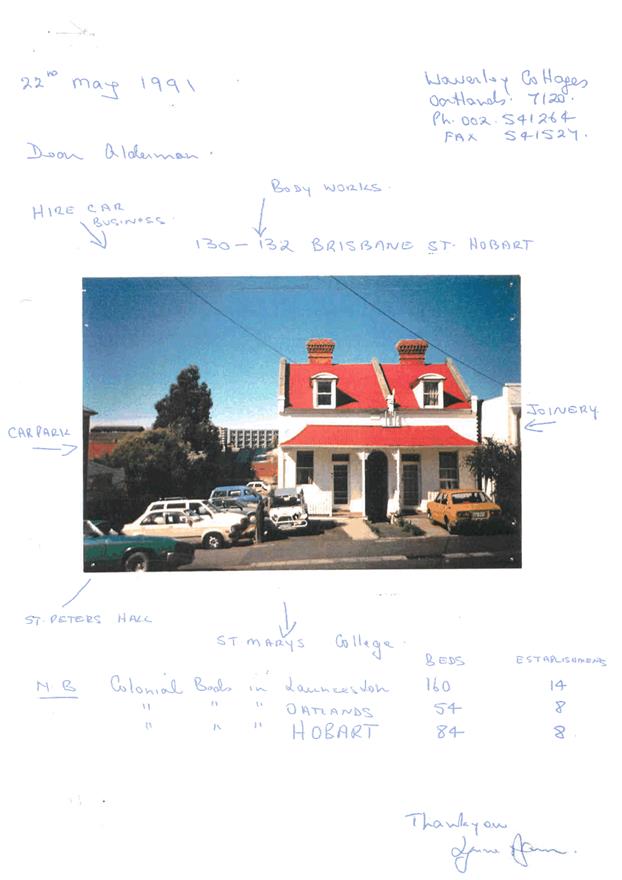 22nd May 1991
Waverley Cottages
Oatlands. 7120.
Ph. 002. 541264
FAX 541527.
Dear Alderman.
BODY WORKS.
HIRE CAR
BUSINESS.
130 - 132 BRISBANE ST. HOBART
CAR PARK
JOINERY
ST. PETERS HALL
ST MARYS College.
BEDS ESTABLISHMENTS
NB Colonial Beds in Launceston 160 14
" " " OATLANDS 54 8
" " " HOBART 84 8
Thankyou